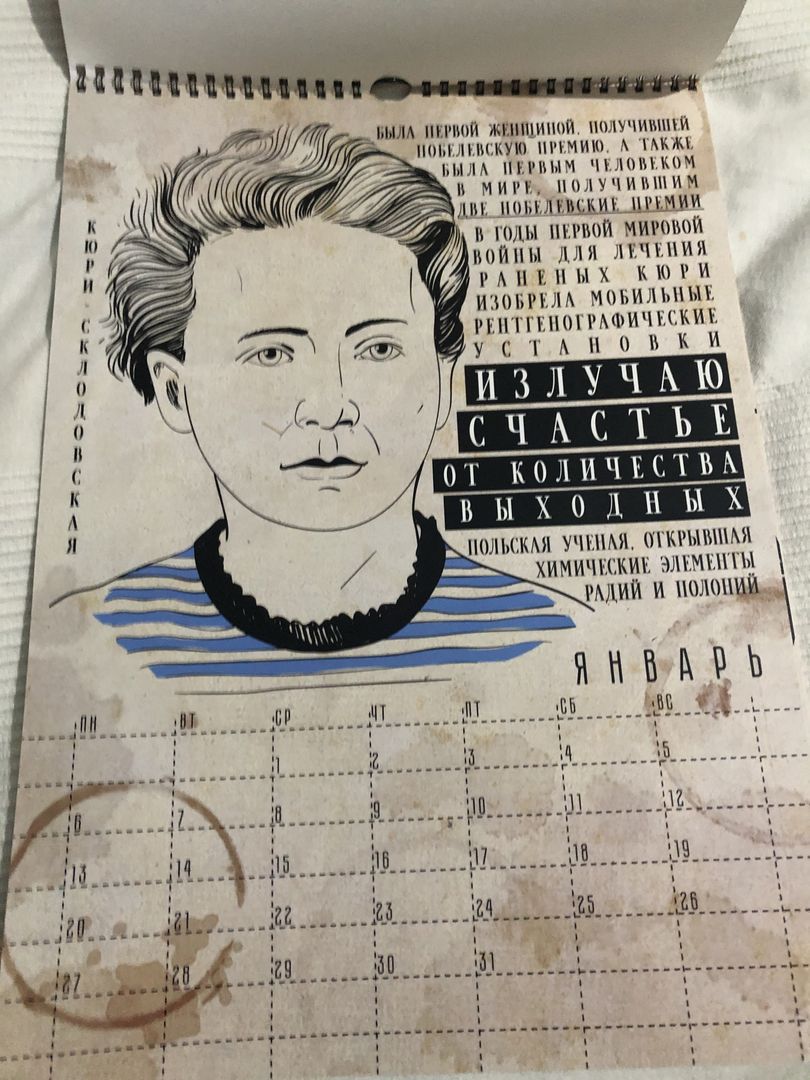 БЫЛА ПЕРВОЙ ЖЕНЩИНОЙ, ПОЛУЧИВШЕЙ
НОБЕЛЕВСКУЮ ПРЕМИЮ, А ТАКЖЕ
БЫЛА ПЕРВЫМ ЧЕЛОВЕКОМ
В МИРЕ, ПОЛУЧИВШИМ
ДВЕ НОБЕЛЕВСКИЕ ПРЕМИИ
В ГОДЫ ПЕРВОЙ МИРОВОЙ
ВОЙНЫ ДЛЯ ЛЕЧЕНИЯ
РАНЕНЫХ КЮРИ
ИЗОБРЕЛА МОБИЛЬНЫЕ
РЕНТГЕНОГРАФИЧЕСКИЕ
УСТАНОВКИ
КЮРИ-СКЛОДОВСКАЯ
ИЗЛУЧАЮ
СЧАСТЬЕ
ОТ КОЛИЧЕСТВА
ВЫХОДНЫХ
ПОЛЬСКАЯ УЧЕНАЯ, ОТКРЫВШАЯ
ХИМИЧЕСКИЕ ЭЛЕМЕНТЫ
РАДИЙ И ПОЛОНИЙ
ЯНВАРЬ
ПН ВТ СР ЧТ ПТ СБ ВС
1 2 3 4 5
6 7 8 9 10 11 12
13 14 15 16 17 18 19
20 21 22 23 24 25 26
27 28 29 30 31